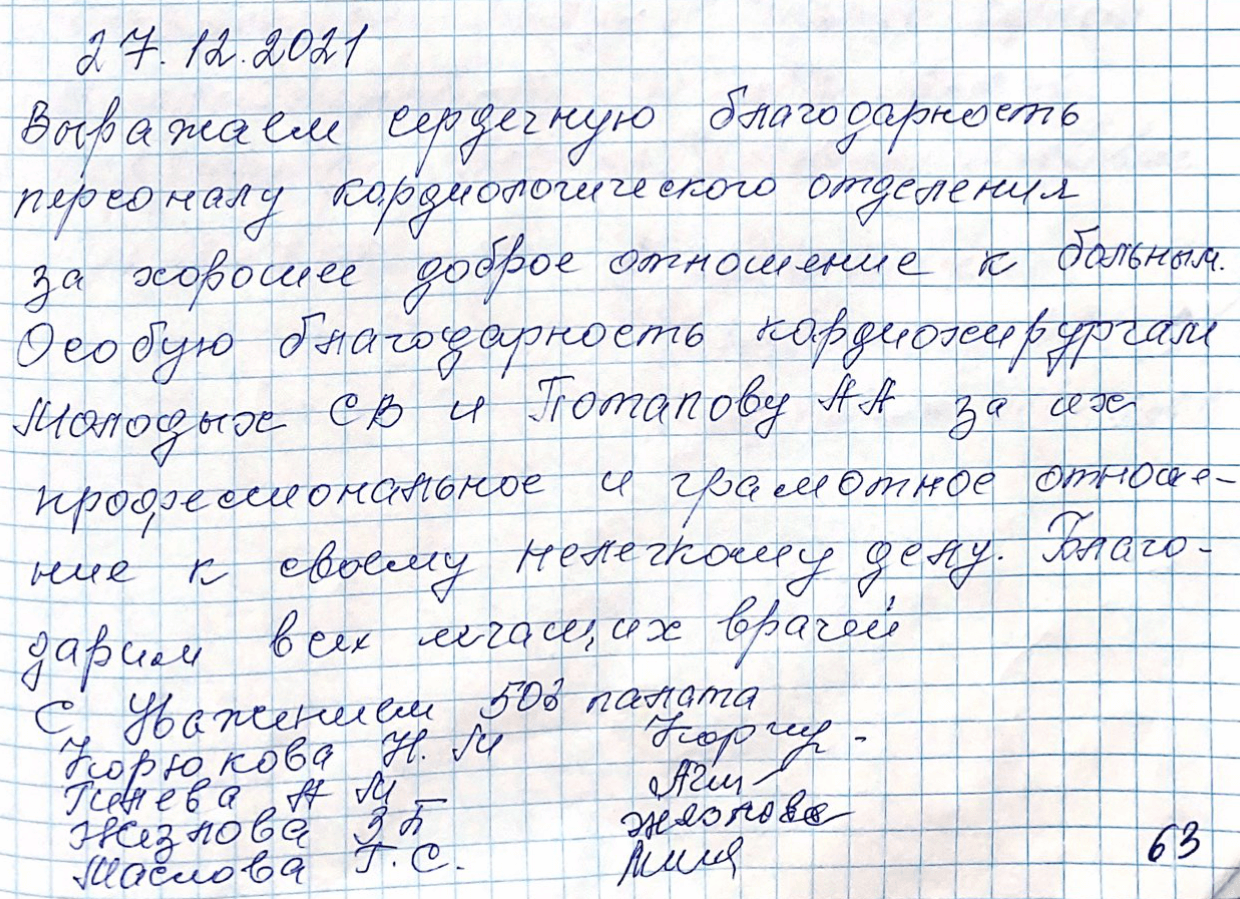 27.12.2021
Выражаем сердечную благодарность
персоналу кардиологического отделения
за хорошее доброе отношение к больным.
Особую благодарность кардиохирургам
Молодых СВ и Потапову АА за их
профессиональное и грамотное отноше-
ние к своему нелегкому делу. Благо-
дарим всех лечащих врачей
С Уважением 503 палата
Корюкова Н. М
А М
Жезлова З П
Маслова Г. С.
63